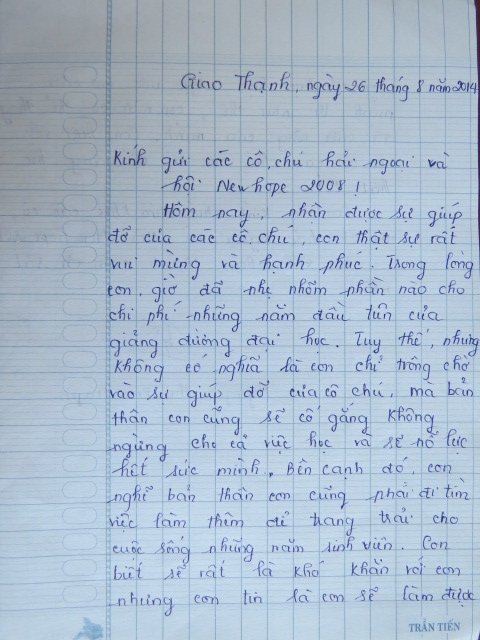 Giao Thạnh, ngày 26 tháng 8 năm 2014
Kính gửi các cô, chú hải ngoại và
hội Newhope 2008!
Hôm nay, nhận được sự giúp
đỡ của các cô, chú, con thật sự rất
vui mừng và hạnh phúc. Trong lòng
con, giờ đã nhẹ nhõm phần nào cho
chi phí những năm đầu tiên của
giảng đường đại học. Tuy thế, nhưng
không có nghĩa là con chỉ trông chờ
vào sự giúp đỡ của cô chú, mà bản
thân con cũng sẽ cố gắng không
ngừng cho cả việc học và sẽ nổ lực
hết sức mình. Bên cạnh đó, con
nghĩ bản thân con cũng phải đi tìm
việc làm thêm để trang trải cho
cuộc sống những năm sinh viên. Con
biết sẽ rất là khó khăn với con
nhưng con tin là con sẽ làm được
TRẦN TIẾN